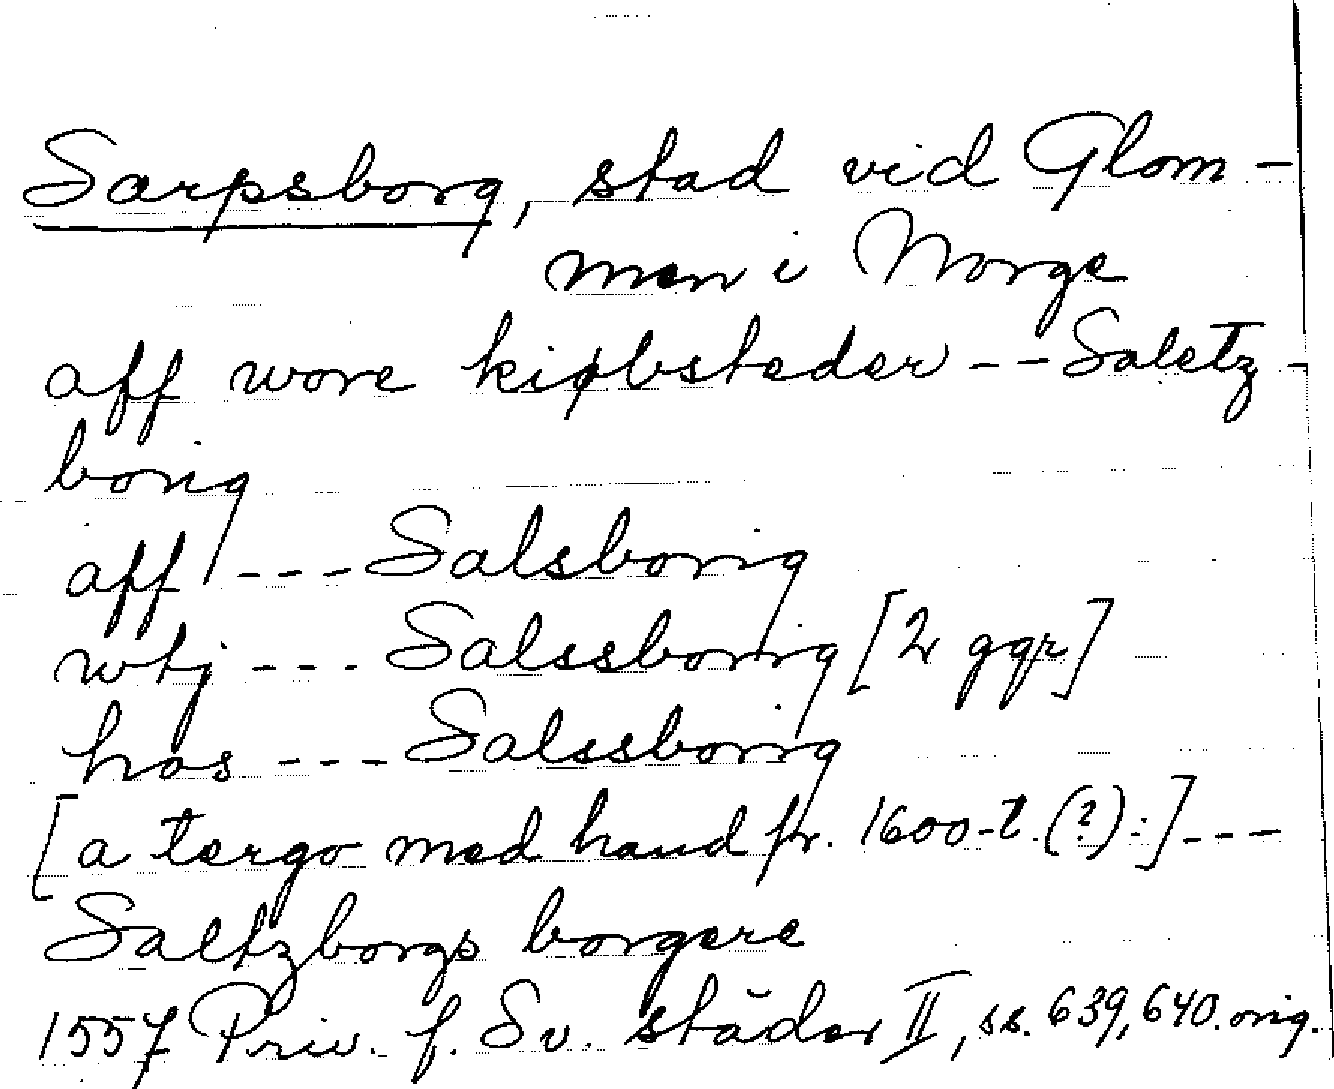 Sarpsborg, stad vid Glom-
men i Norge
aff wore kiøbsteder -- Saletz-
borig
aff --- Salsborig
wtj --- Salssborig [2 ggr]
hos --- Salssborig
[a tergo med hand fr. 1600-t. (?):] ---
Saltzborgs borgere
1557 Priv. f. Sv. städer II, ss. 639, 640. orig.